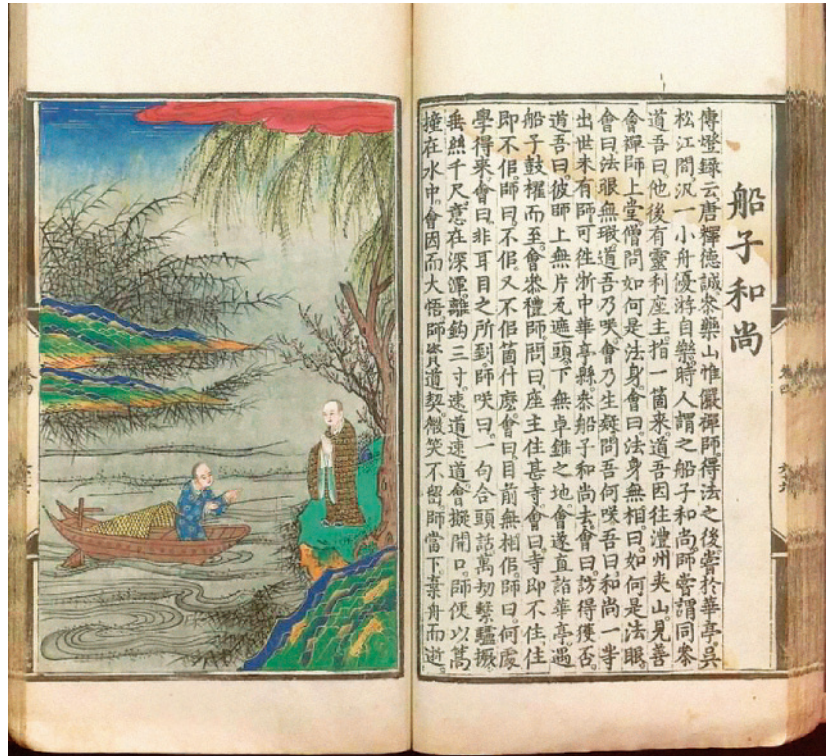 船子和尚
傳燈錄云。唐釋德誠。叅藥山惟儼禪師。得法之後。嘗於華亭。吳
松江間。汎一小舟優游自樂。時人謂之船子和尚。師嘗謂同叅
道吾曰。他後有靈利座主。指一箇来。道吾因往澧州夾山。見善
會禪師上堂。僧問如何是法身。會曰法身無相。曰如何是法眼。
會曰法眼無瑕。道吾乃咲。會乃生疑問吾何咲。吾曰和尚一等
出世未有師。可徃浙中華亭縣。叅船子和尚去。會曰訪得獲否。
道吾曰。彼師上無片瓦遮頭。下無卓錐之地。會遂直詣華亭。遇
船子鼓櫂而至。會叅禮。師問曰。座主住甚寺。會曰寺即不住。住
即不佀。師曰。不佀。又不佀箇什麽。會曰目前無相佀。師曰。何處
學得来。會曰非耳目之所到。師咲曰。一句合頭語。萬劫繫驢橛。
垂絲千尺。意在深潭。離鈎三寸。速道速道。會擬開口。師便以篙
撞在水中。會因而大悟。師資道契。微笑不留。師當下棄舟而逝。